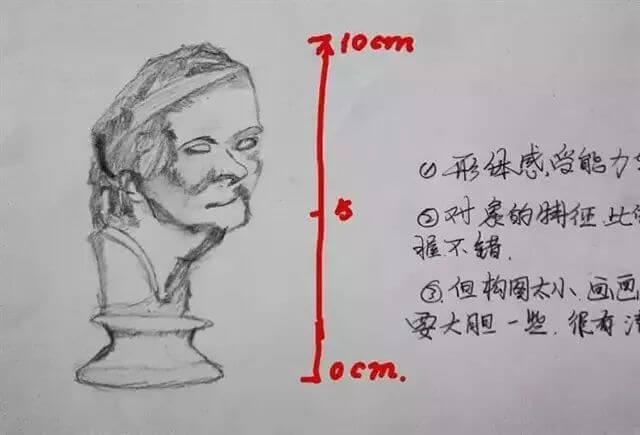 10cm
5
0cm.
① 形体感受能力
② 对象的特征.比
握不错.
③ 但构图太小.画画
要大胆一些.很有